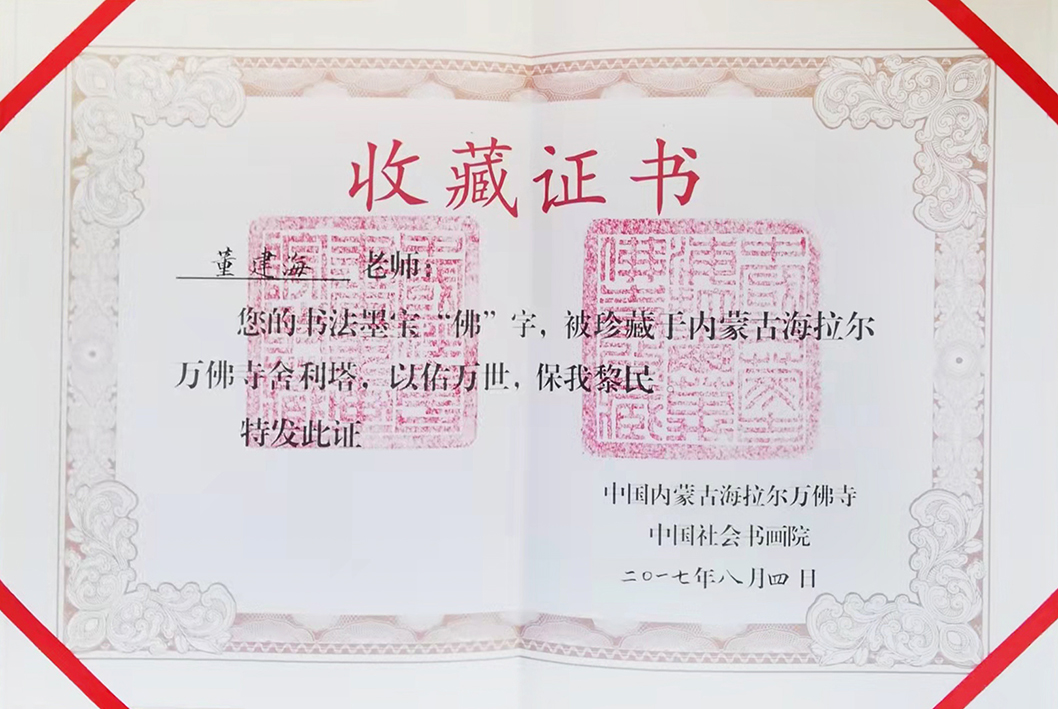 收藏证书
董建海 老师：
您的书法墨宝“佛”字，被珍藏于内蒙古海拉尔
万佛寺舍利塔，以佑万世，保我黎民
特发此证
中国内蒙古海拉尔万佛寺
中国社会书画院
二〇一七年八月四日